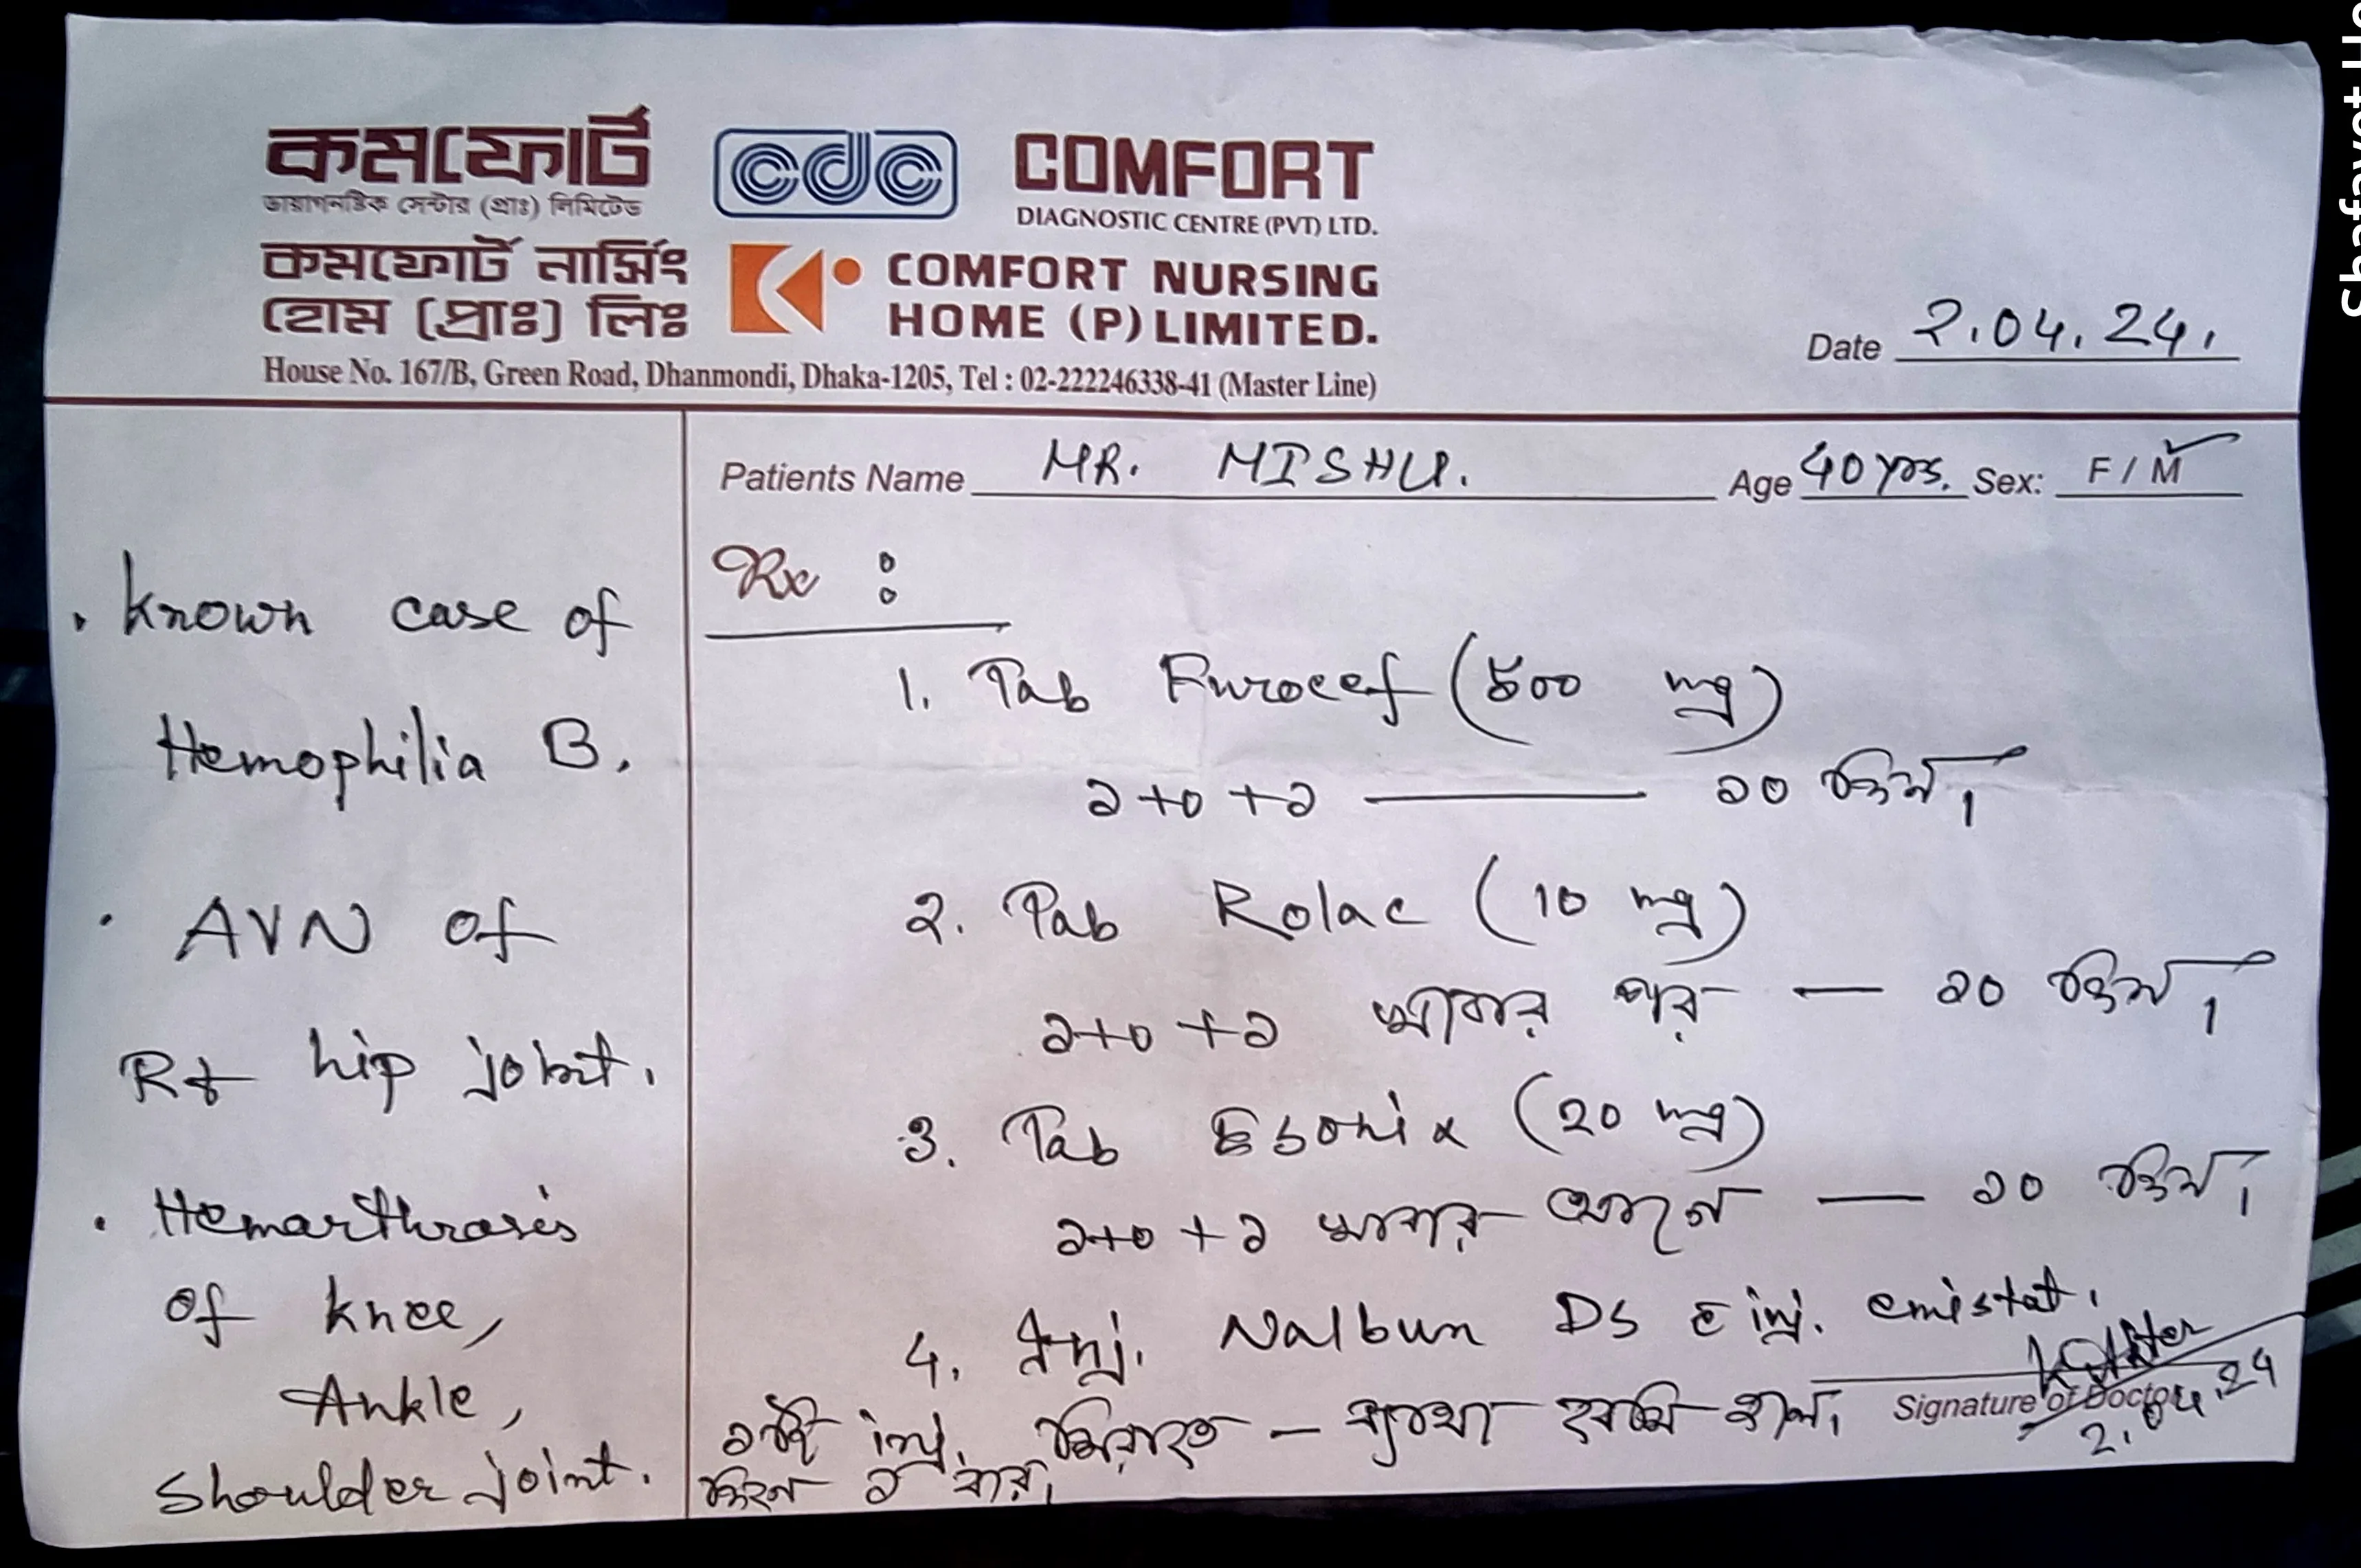 কমফোর্ট
ডায়াগনষ্টিক সেন্টার (প্রাঃ) লিমিটেড
cdc
COMFORT
DIAGNOSTIC CENTRE (PVT) LTD.
কমফোর্ট নার্সিং
হোম (প্রাঃ) লিঃ
COMFORT NURSING
HOME (P) LIMITED.
House No. 167/B, Green Road, Dhanmondi, Dhaka-1205, Tel : 02-222246338-41 (Master Line)
Date 2.04.24.
Patients Name MR. MISHU. Age 40 yrs. Sex: F / M
• Known case of
Hemophilia B.
• AVN of
Rt hip joint.
• Hemarthrosis
of knee,
Ankle,
Shoulder joint.
Rx :
1. Tab Furocef (500 mg)
১+০+১ — ১০ দিন।
2. Tab Rolac (10 mg)
১+০+১ খাবার পর — ১০ দিন।
3. Tab Esonix (20 mg)
১+০+১ খাবার আগে — ১০ দিন।
4. Inj. Nalbun DS c̄ inj. emistat.
১টি inj. শিরাতে – ব্যথা বেশি হলে।
দিনে ২ বার।
Signature of Doctor
2.04.24
Shafayet